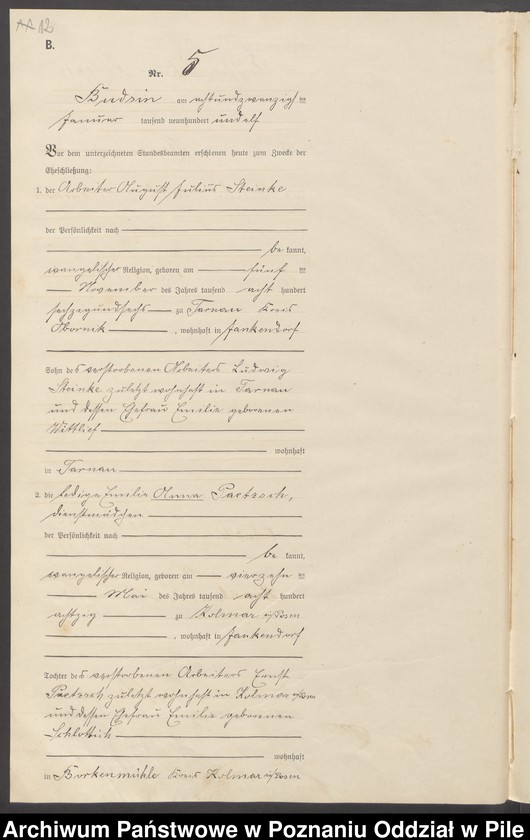 12
B.
Nr. 5
Budsin am achtundzwanzig ten
Januar tausend neunhundert und elf
Vor dem unterzeichneten Standesbeamten erschienen heute zum Zwecke der
Eheschließung:
1. der Arbeiter August Julius Steinke
der Persönlichkeit nach
be kannt,
evangelischer Religion, geboren am fünf ten
November des Jahres tausend acht hundert
sechzigundsechs zu Tarnau Kreis
Obornik, wohnhaft in Jankendorf
Sohn des verstorbenen Arbeiters Ludwig
Steinke zuletzt wohnhaft in Tarnau
und dessen Ehefrau Emilie geborenen
Wittlief
wohnhaft
in Tarnau
2. die ledige Emilie Anna Paetzsch,
Dienstmädchen
der Persönlichkeit nach
be kannt,
evangelischer Religion, geboren am vierzehn ten
Mai des Jahres tausend acht hundert
achtzig zu Kolmar i/Posen
, wohnhaft in Jankendorf
Tochter des verstorbenen Arbeiters Ernst
Paetzsch zuletzt wohnhaft in Kolmar i/Posen
und dessen Ehefrau Emilie geborenen
wohnhaft
in Borkenmühle Kreis Kolmar i/Posen
Archiwum Państwowe w Poznaniu Oddział w Pile